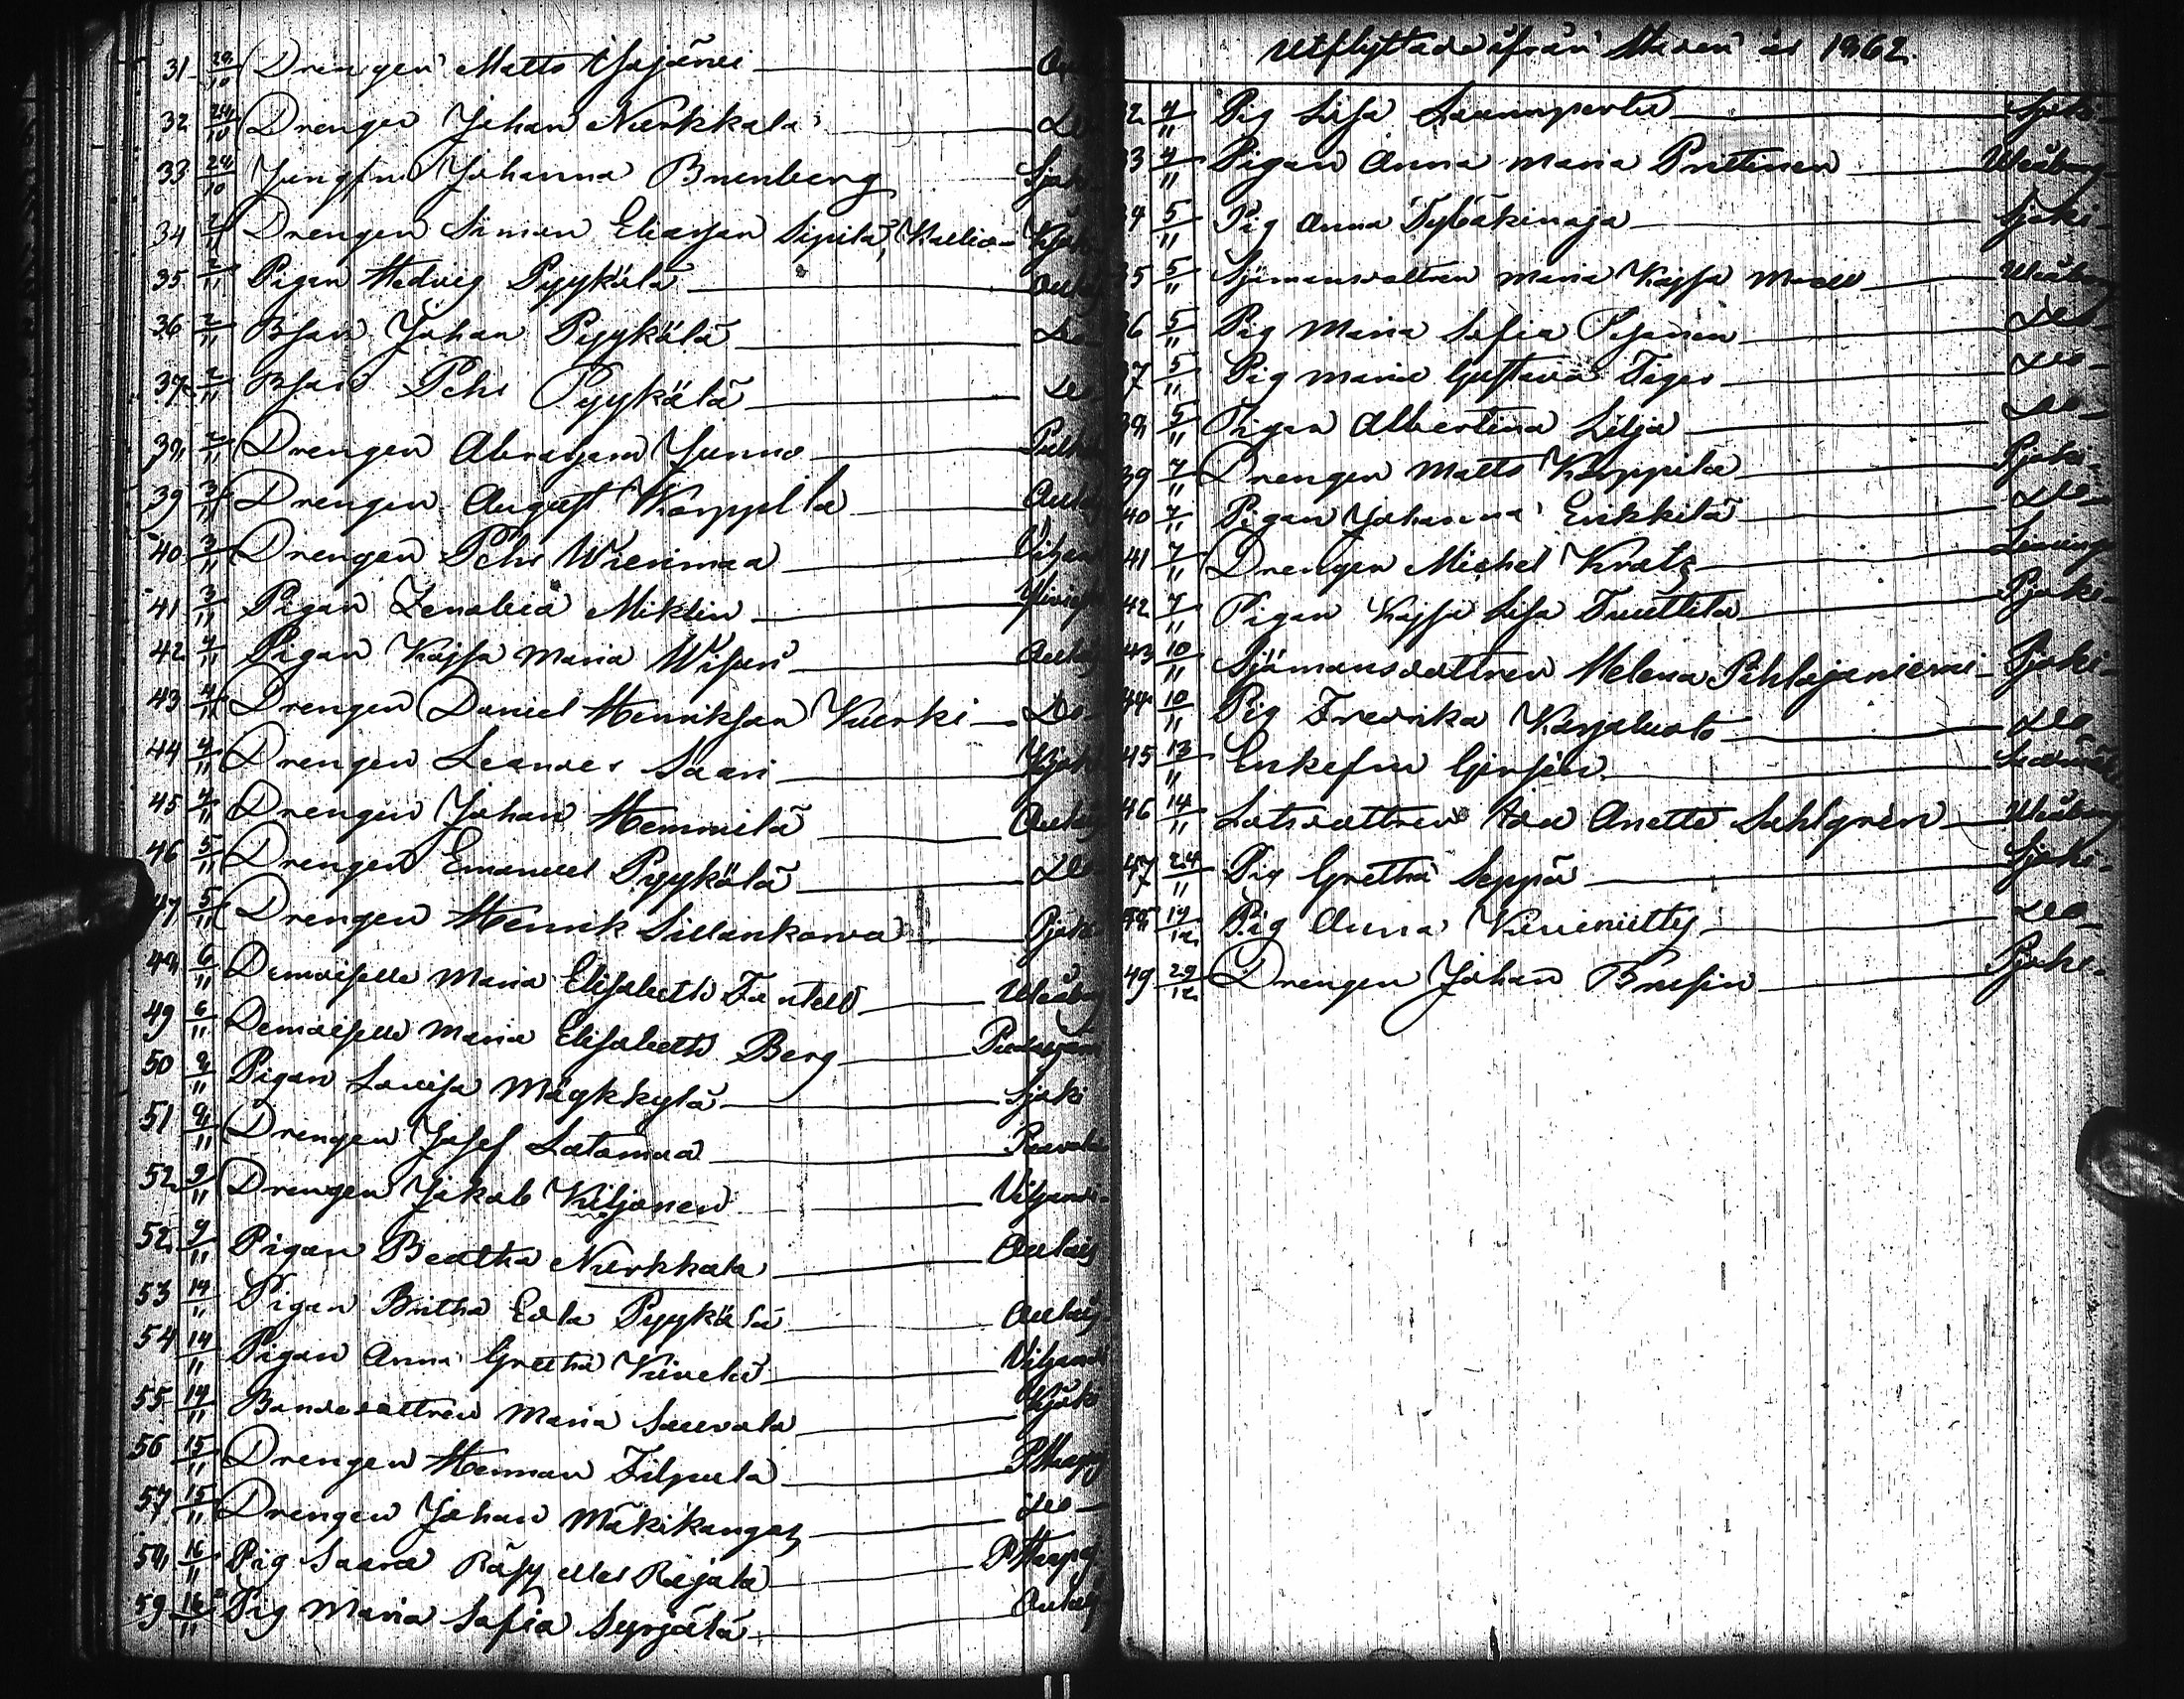 31 29/10 Drengen Matts Ojajärvi
32 24/10 Drengen Johan Nurkkala Do
33 24/10 Jungfru Johanna Brunberg Sjok
34 2/11 Drengen Simon Eliasson Sipilä, Kallio Kjok
35 2/11 Pigan Hedvig Pyykölä Oulai
36 2/11 Bson Johan Pyykölä Do
37 2/11 Bson Pehr Pyykölä Do
38 2/11 Drengen Abraham Junno
39 3/11 Drengen August Karppila Oulai
40 3/11 Drengen Pehr Wierimaa Viljan
41 3/11 Pigan Zenobia Miklin Ylivies
42 4/11 Pigan Kajsa Maria Wisuri Oulai
43 4/11 Drengen Daniel Henriksson Kurki Do
44 4/11 Drengen Leander Saari Kjok
45 4/11 Drengen Johan Hemmilä Oulai
46 5/11 Drengen Emanuel Pyykölä Do
47 5/11 Drengen Henrik Sillankorva Pjoki
48 6/11 Demoiselle Maria Elisabeth Fantell Uleåbg
49 6/11 Demoiselle Maria Elisabeth Berg Pudasjärvi
50 8/11 Pigan Lovisa Mäykkylä Sjoki
51 8/11 Drengen Josef Latomaa
52 9/11 Drengen Jakob Kiljonen Viljandi
52 9/11 Pigan Beatha Nurkkala Oulais
53 14/11 Pigan Britha Eva Pyykölä Oulais
54 14/11 Pigan Anna Gretha Kivelä Viljandi
55 14/11 Bondedottren Maria Sauvola Kjok
56 15/11 Drengen Herman Filpula PHaapaj
57 15/11 Drengen Johan Mäkikangas Do
58 16/11 Pig Saara Räsy eller Rajala PHaapaj
59 16/11 Pig Maria Sofia Syrjälä Oulais
Utflyttade ifrån Staden år 1862.
32 4/11 Pig Lisa Luumperta Sjoki
33 4/11 Pigan Anna Maria Prittinen Uleåborg
34 5/11 Pig Anna Sjoki
35 5/11 Sjömansdottren Maria Kajsa Modell Uleåborg
36 5/11 Pig Maria Sofia Pesonen Do
37 5/11 Pig Maria Gustava Tiger Do
38 5/11 Pigan Albertina Lilja Do
39 7/11 Drengen Matts Karppila Pjoki
40 7/11 Pigan Johanna Erikkilä Do
41 7/11 Drengen Michel Kratz Liminga
42 7/11 Pigan Kajsa Lisa Tuuttila Pjoki
43 10/11 Sjömansdottren Helena Pihlajaniemi Pjoki
44 10/11 Pig Fredrika Karjaluoto Do
45 13/11 Enkefru
46 14/11 Lotsdottren Ada Anette Sahlgrén Uleåborg
47 24/11 Pig Gretha Seppä Sjoki
48 19/12 Pig Anna Kiviniitty Do
49 29/12 Drengen Johan Brusin Pjoki